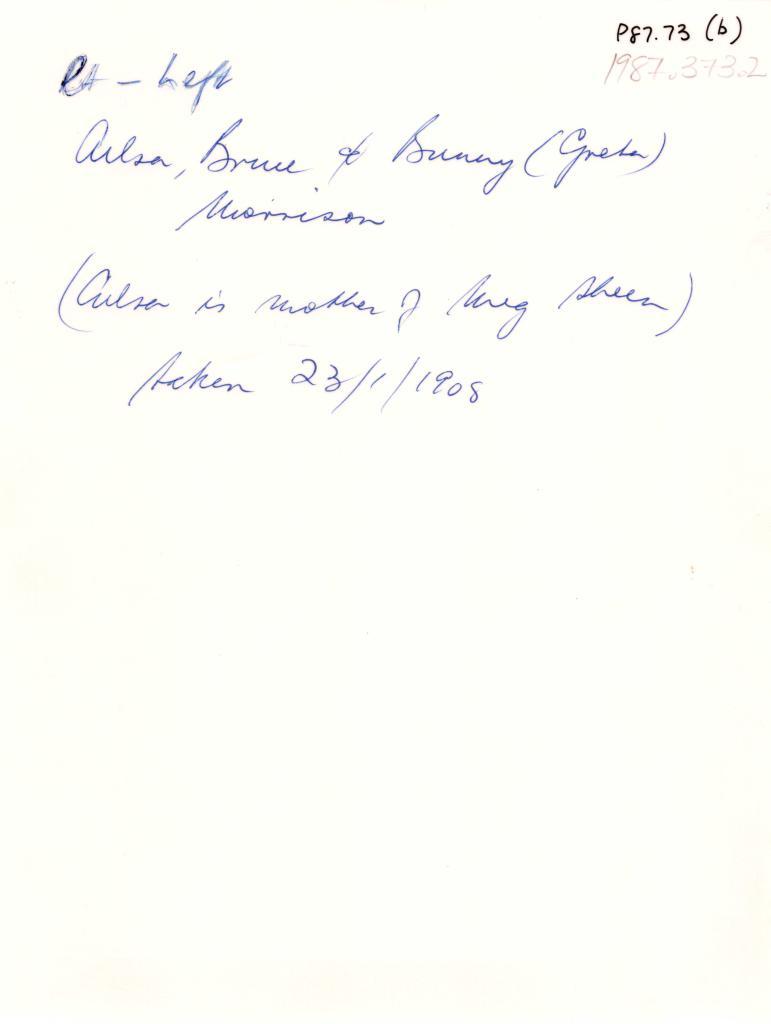 P87.73 (b)
1987.373.2
Rt - Left
Ailsa, Bruce & Bunny (Greta)
Morrison
(Ailsa is mother of Meg Sheen)
taken 23/1/1908